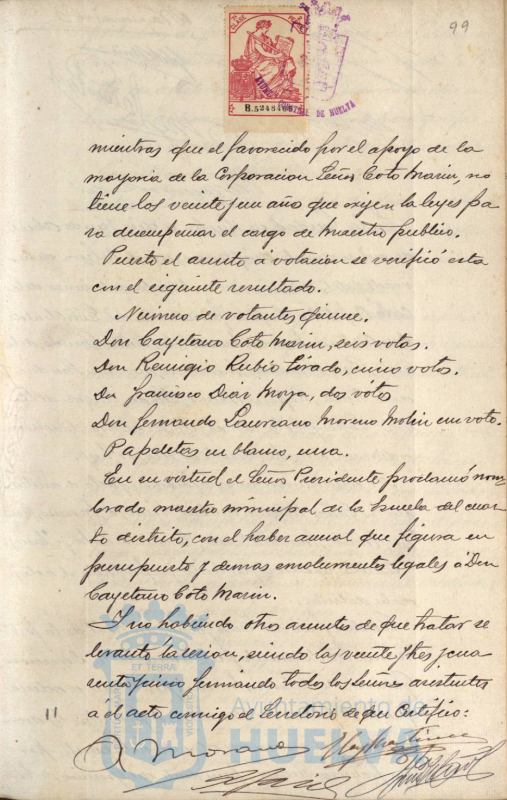 99
B.5248466
DE HUELVA
mientras que el favorecido por el apoyo de la
mayoria de la Corporacion Señor Coto Marin, no
tiene los veinte y un año que exijen la leyes pa
ra desempeñar el cargo de Maestro publico.
Puesto el asunto á votacion se verificó esta
con el siguiente resultado.
Número de votantes quince.
Don Cayetano Coto Marin, seis votos.
Don Remigio Rubio Tirado, cinco votos.
Dn Francisco Diaz Moya, dos votos
Don Fernando Laureano Moreno Molin un voto.
Papeletas en blanco, una.
En su virtud el Señor Presidente proclamó nom
brado maestro municipal de la Escuela del cuar
to distrito, con el haber anual que figura en
presupuesto y demas emolumentos legales á Don
Cayetano Coto Marin.
Y no habiendo otros asuntos de que tratar se
levantó la sesion, siendo las veinte y tres y cua
renta y cinco firmando todos los Señores asistentes
a el acto conmigo el Secretario de que Certifico:
11
ET TERRA
Ayuntamiento de
HUELVA
Morano